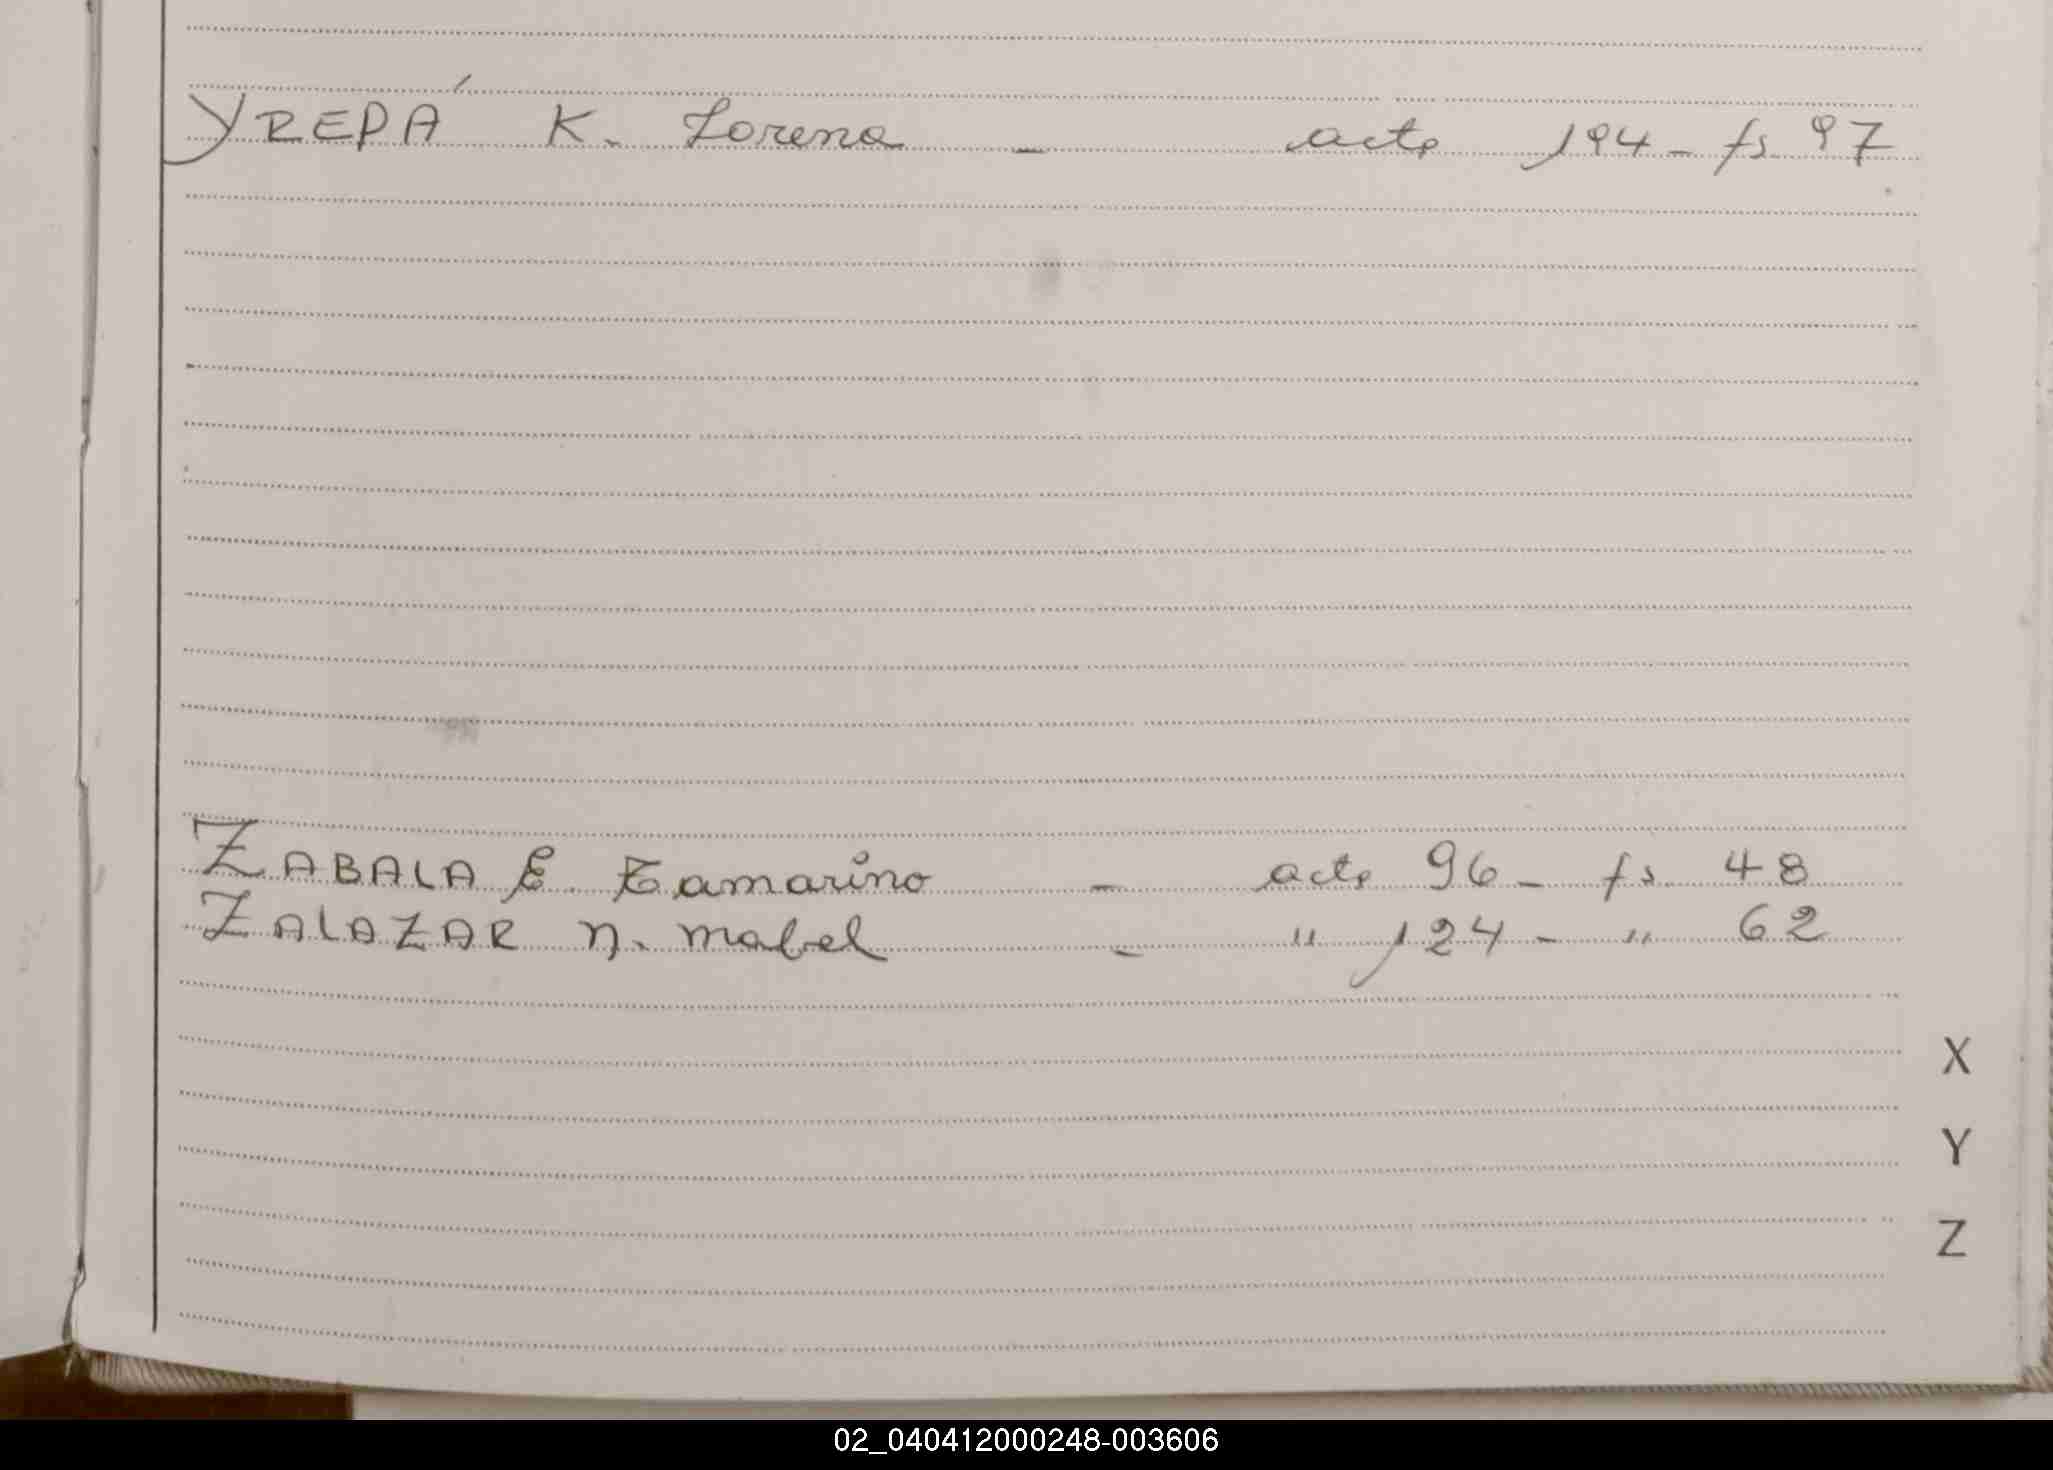 YREPÁ K. Lorena - acta 194 - fs. 97
ZABALA E. Tamarino - acta 96 - fs. 48
ZALAZAR N. Mabel - " 124 - " 62
X
Y
Z
02_040412000248-003606